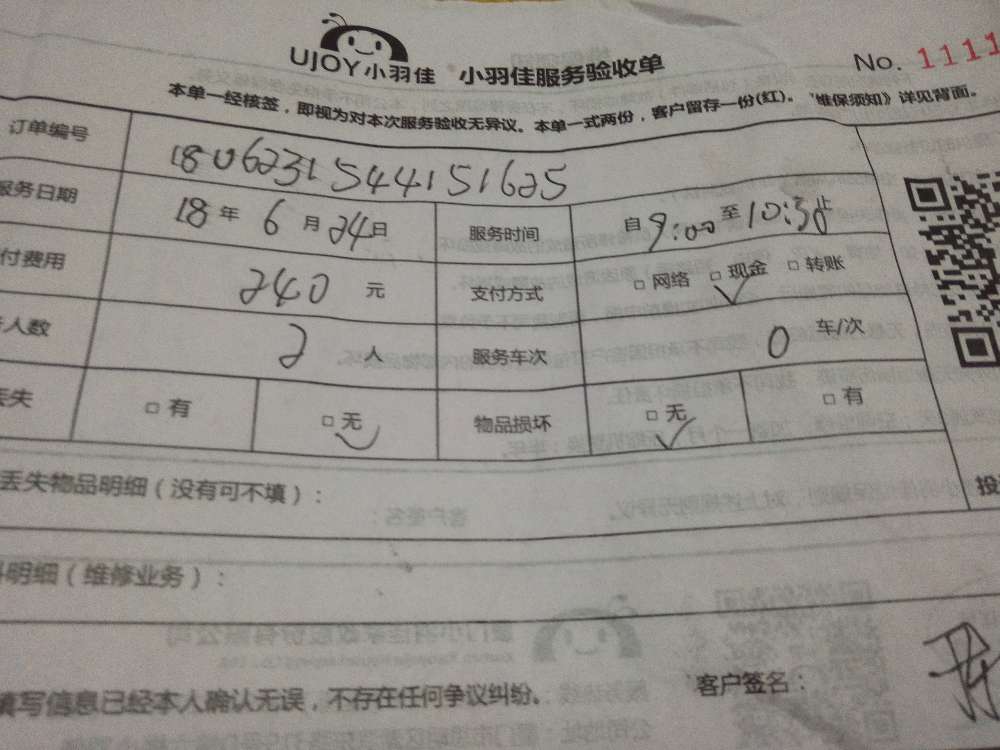 UJOY小羽佳 小羽佳服务验收单 No. 1111
本单一经核签，即视为对本次服务验收无异议。本单一式两份，客户留存一份(红)。《维保须知》详见背面。
订单编号 180623154415​1625
服务日期 18年6月24日 服务时间 自9:00至10:30止
付费用 240元 支付方式 □网络 □现金 □转账
人数 2人 服务车次 0车/次
丢失 □有 □无 物品损坏 □无 □有
丢失物品明细（没有可不填）：
投
明细（维修业务）：
填写信息已经本人确认无误，不存在任何争议纠纷。
客户签名：